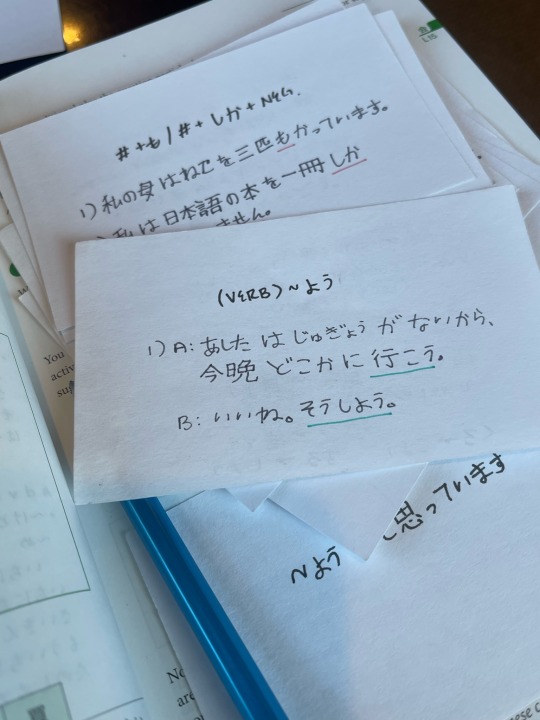 L15
#+も/#+しか+NEG.
1) 私の母はねこを三匹もかっています。
私は日本語の本を一冊しか
ません。
(VERB)~よう
1) A: あしたはじゅぎょうがないから、
今晩どこかに行こう。
B: いいね。そうしよう。
~よう と思っています
You
activ